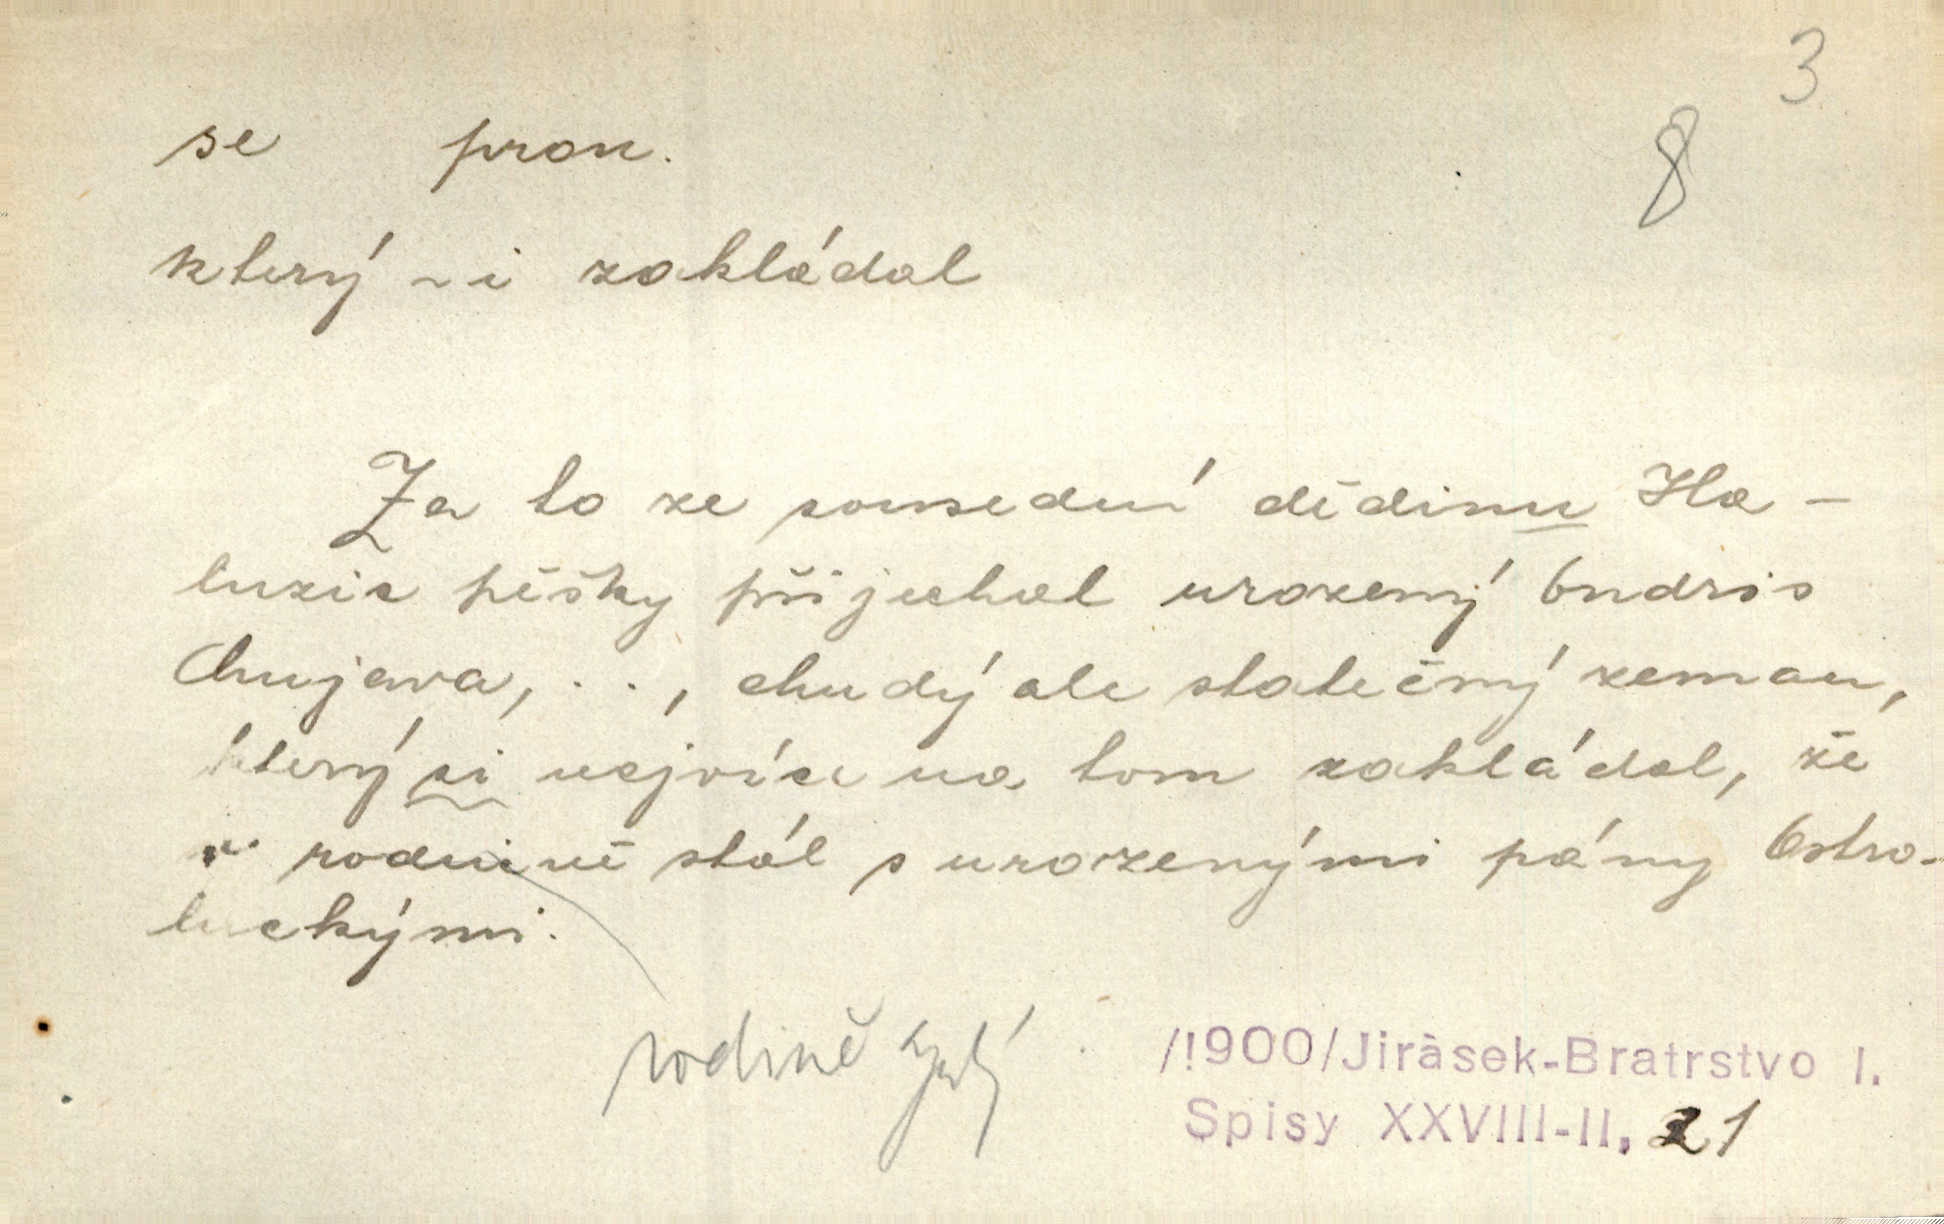 3
8
se pron.
který ~i zakládal
Za to ze sousední dědinu Ha-
luzic pěšky přijechal urozený Ondris
Chujava, . . , chudý ale statečný zeman,
který si nejvíce na tom zakládal, že
v rodnině stál s urozenými pány Ostro-
luckými.
rodině
/!900/Jiràsek-Bratrstvo I.
Spisy XXVIII-II, 21